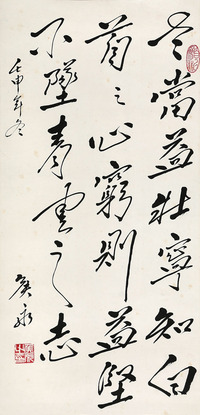 老當益壯寧知白
首之心窮則益堅
不墜青雲之志
壬申年冬